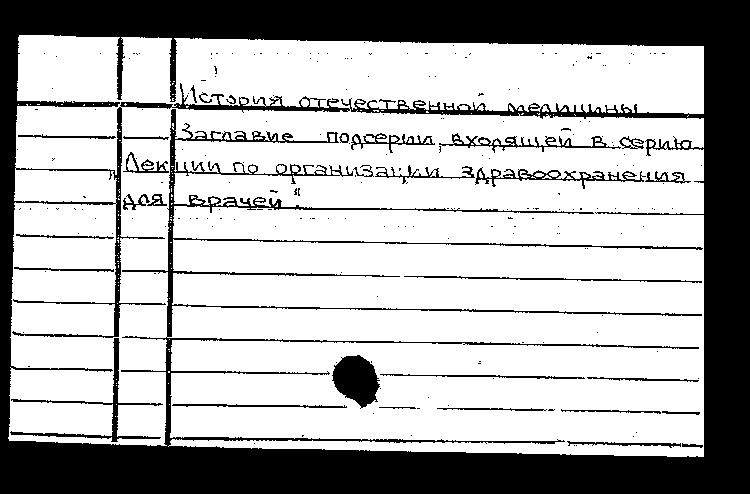 История отечественной медицины
Заглавие подсерии, входящей в серию
„Лекции по организации здравоохранения
для врачей".